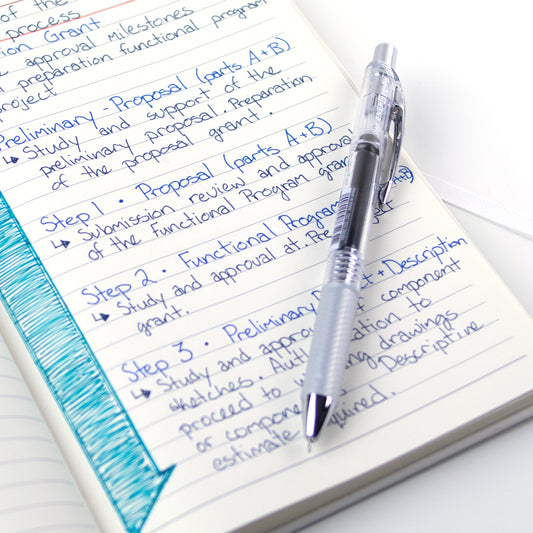 of the
process
ion Grant
approval milestones
preparation functional program
project
Preliminary - Proposal (parts A+B)
↳ Study and support of the
preliminary proposal. Preparation
of the proposal grant.
Step 1 • Proposal (parts A+B)
↳ Submission review and approval
of the Functional Program grant A+B)
Step 2 • Functional Program
↳ Study and approval at. Pre project
grant.
Step 3 • Preliminary + Description
↳ Study and appro of component
sketches. Auth ation to
proceed to w ng drawings
or compon Descriptive
estimate quired.